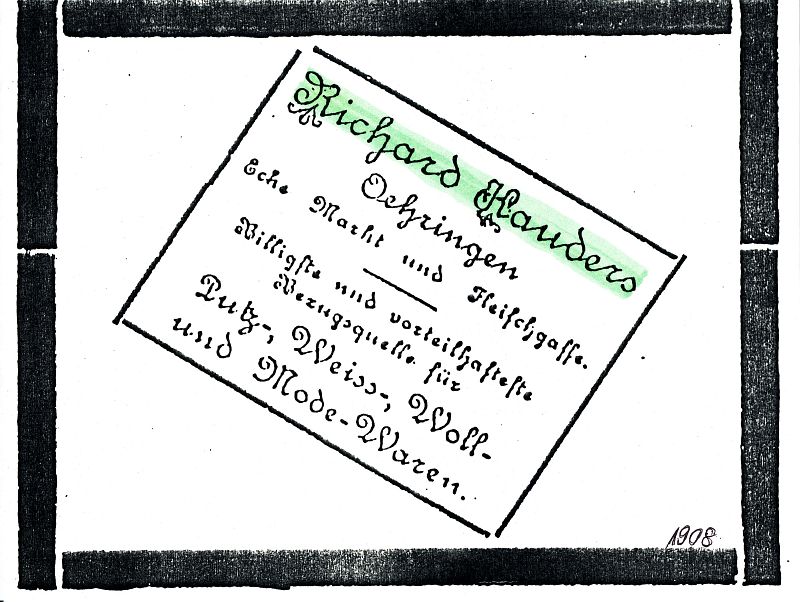 Richard Kauders
Oehringen
Ecke Markt und Fleischgasse.
Billigste und vorteilhafteste
Bezugsquelle für
Putz-, Weiss-, Woll-
und Mode-Waren.
1908